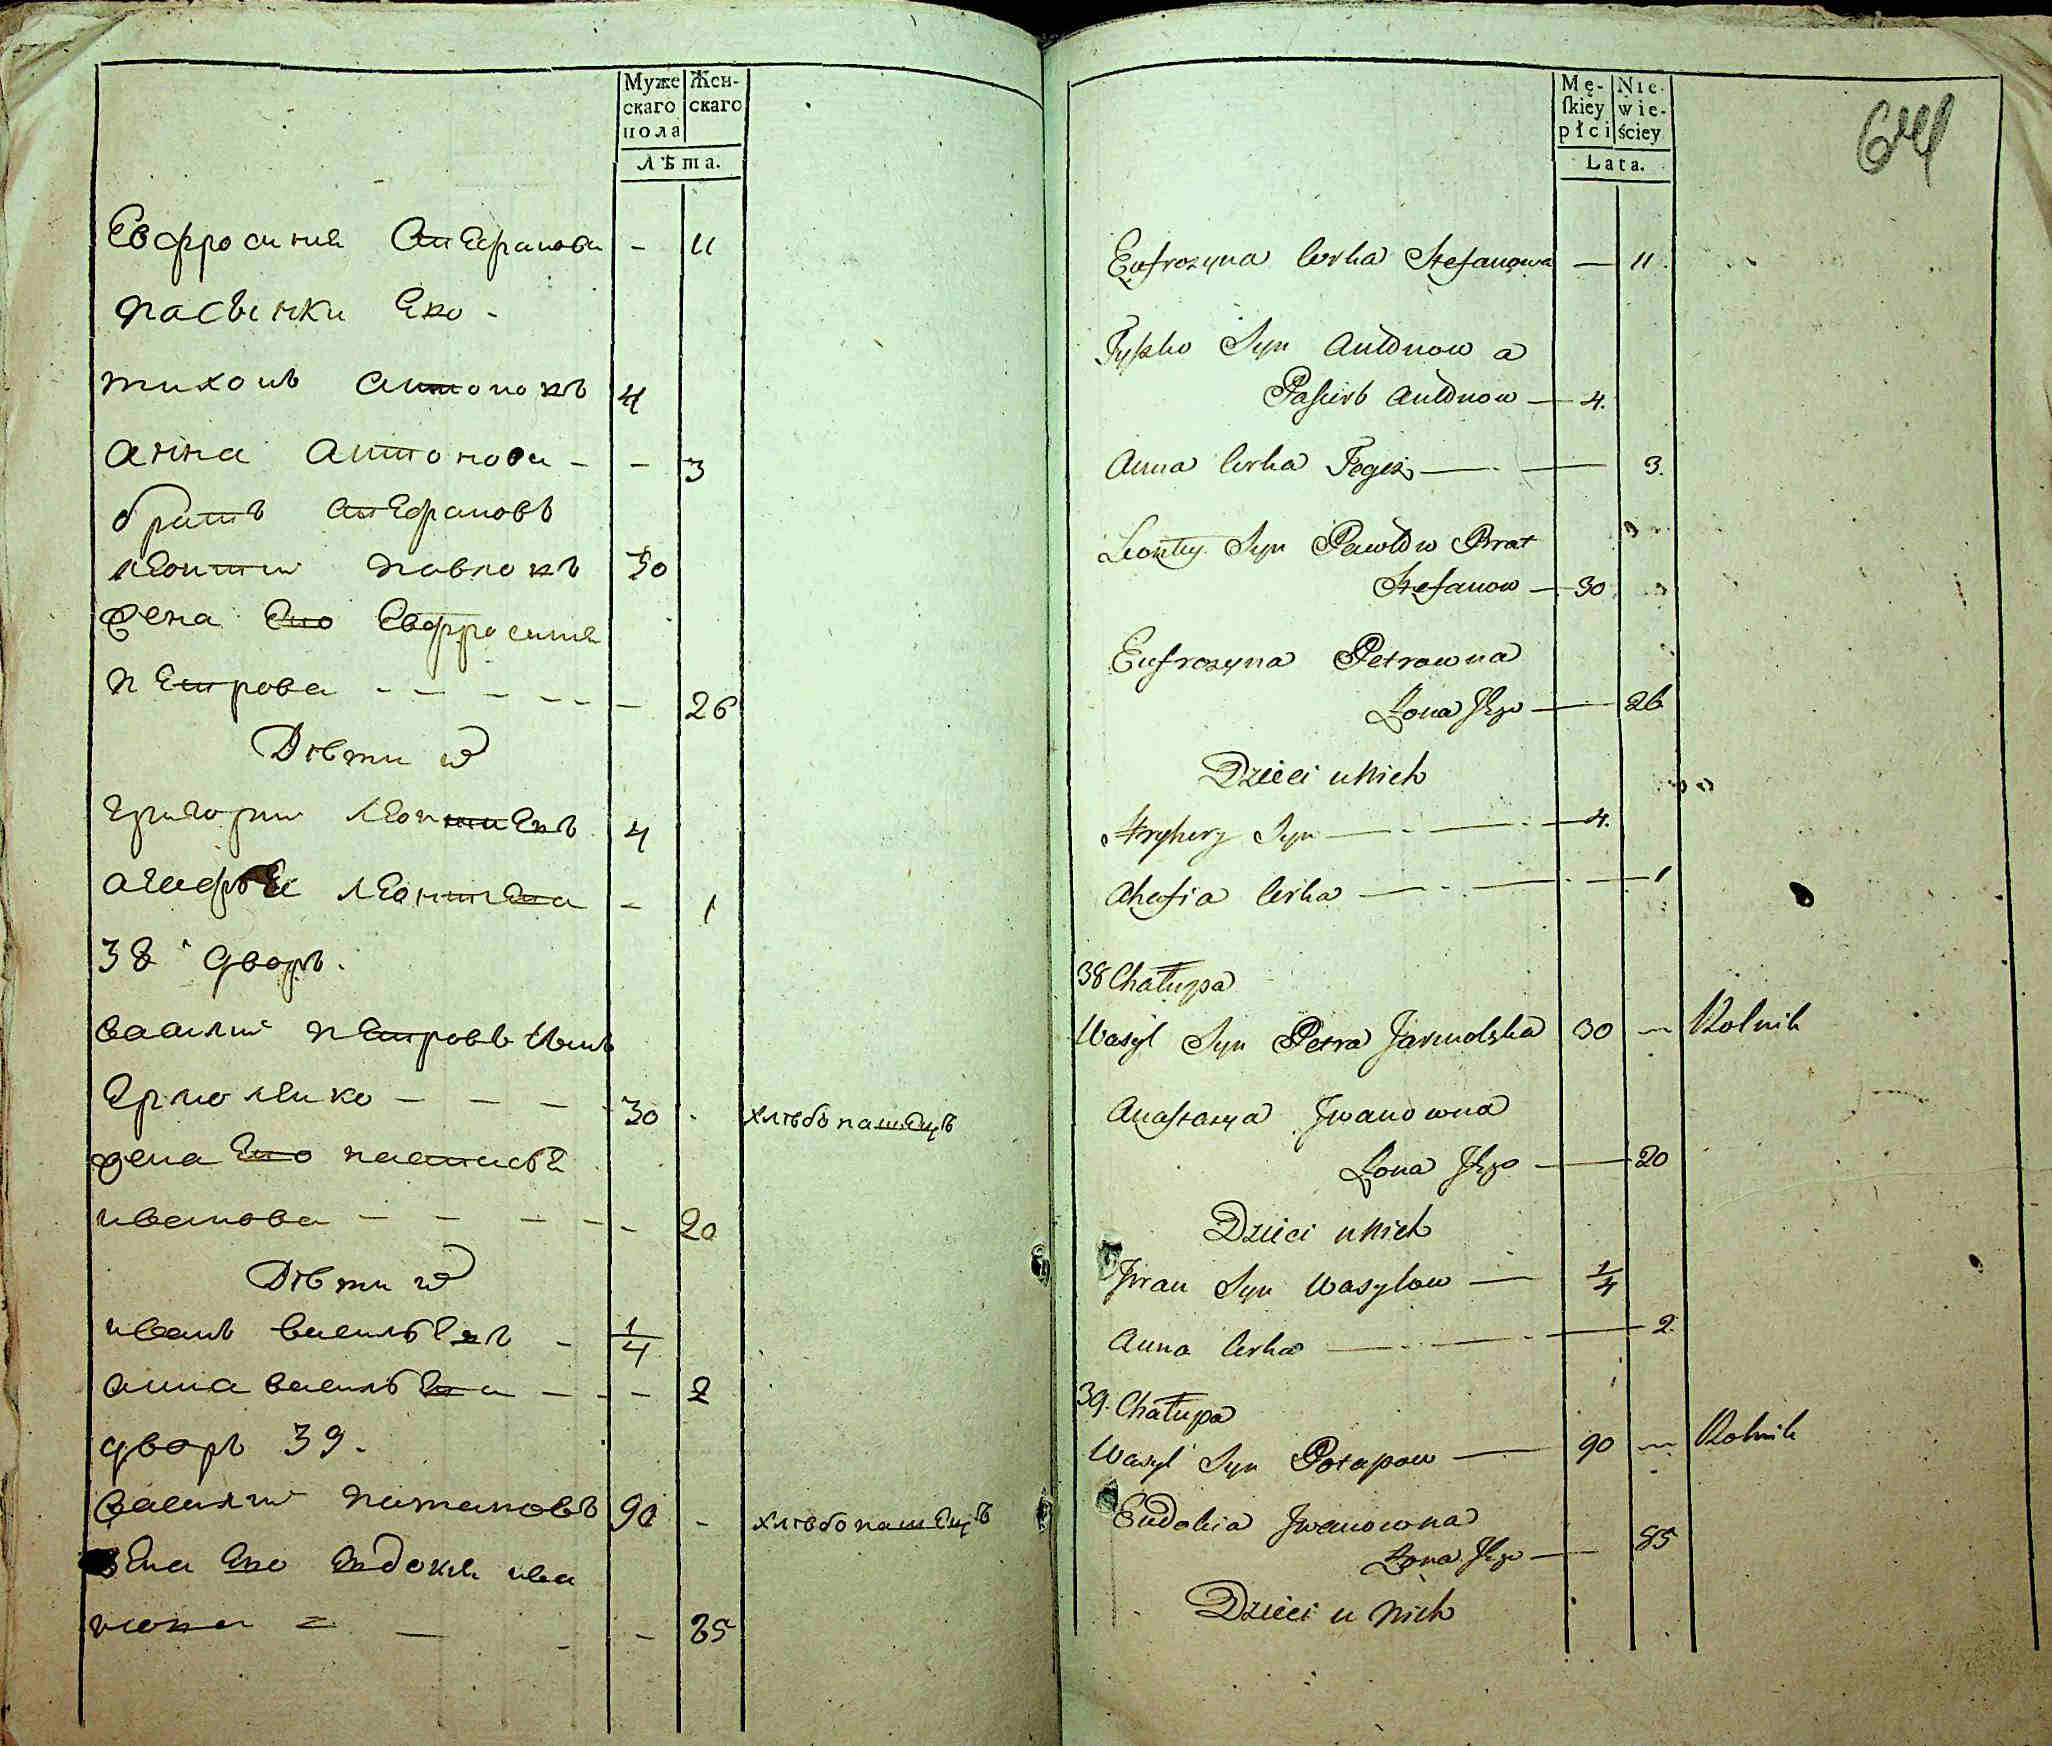 Муже
скаго
пола
Жен-
скаго
Лѣта.
Евфросиния Степанова - 11
пасынки Его -
тихонъ антоновъ 4
анна антонова - - 3
братъ степановъ
леонтии павловъ 30
жена Его Евфросиния
петрова - - - - - - 26
Дѣти их
григории леонтиевъ 4
агафья леонтиева - 1
38 дворъ.
василий петровъ сынъ
Ермоленко - - - - 30 - хлѣбопашецъ
жена Его настасья
иванова - - - - - 20
Дѣти их
иванъ васильевъ - 1/4
анна васильева - - - 2
дворъ 39.
василий патаповъ 90 - хлѣбопашецъ
жена Его Евдокия ива
нова = - - - 85
Mę-
ſkiey
płci
Nie-
wie-
ściey
Lata.
64
Eufrozyna Corka Stefanowa — 11.
Tyszko Syn Antonow a
Pasierb Antonow — 4.
Anna Corka Tegoż — 3.
Leonty Syn Pawłow Brat
Stefanow — 30
Eufrozyna Petrowna
Żona Jego — 26
Dzieci u Nich
Hryhory Syn — 4.
Ahafia Corka — 1
38 Chałupa
Wasyl Syn Petra Jarmolzka 30 — Rolnik
Anastazya Jwanowna
Żona Jego — 20
Dzieci u Nich
Jwan Syn Wasylow — 1/4
Anna Corka — 2.
39. Chałupa
Wasyl Syn Potapow — 90 — Rolnik
Eudokia Jwanowna
Żona Jego — 85
Dzieci u Nich